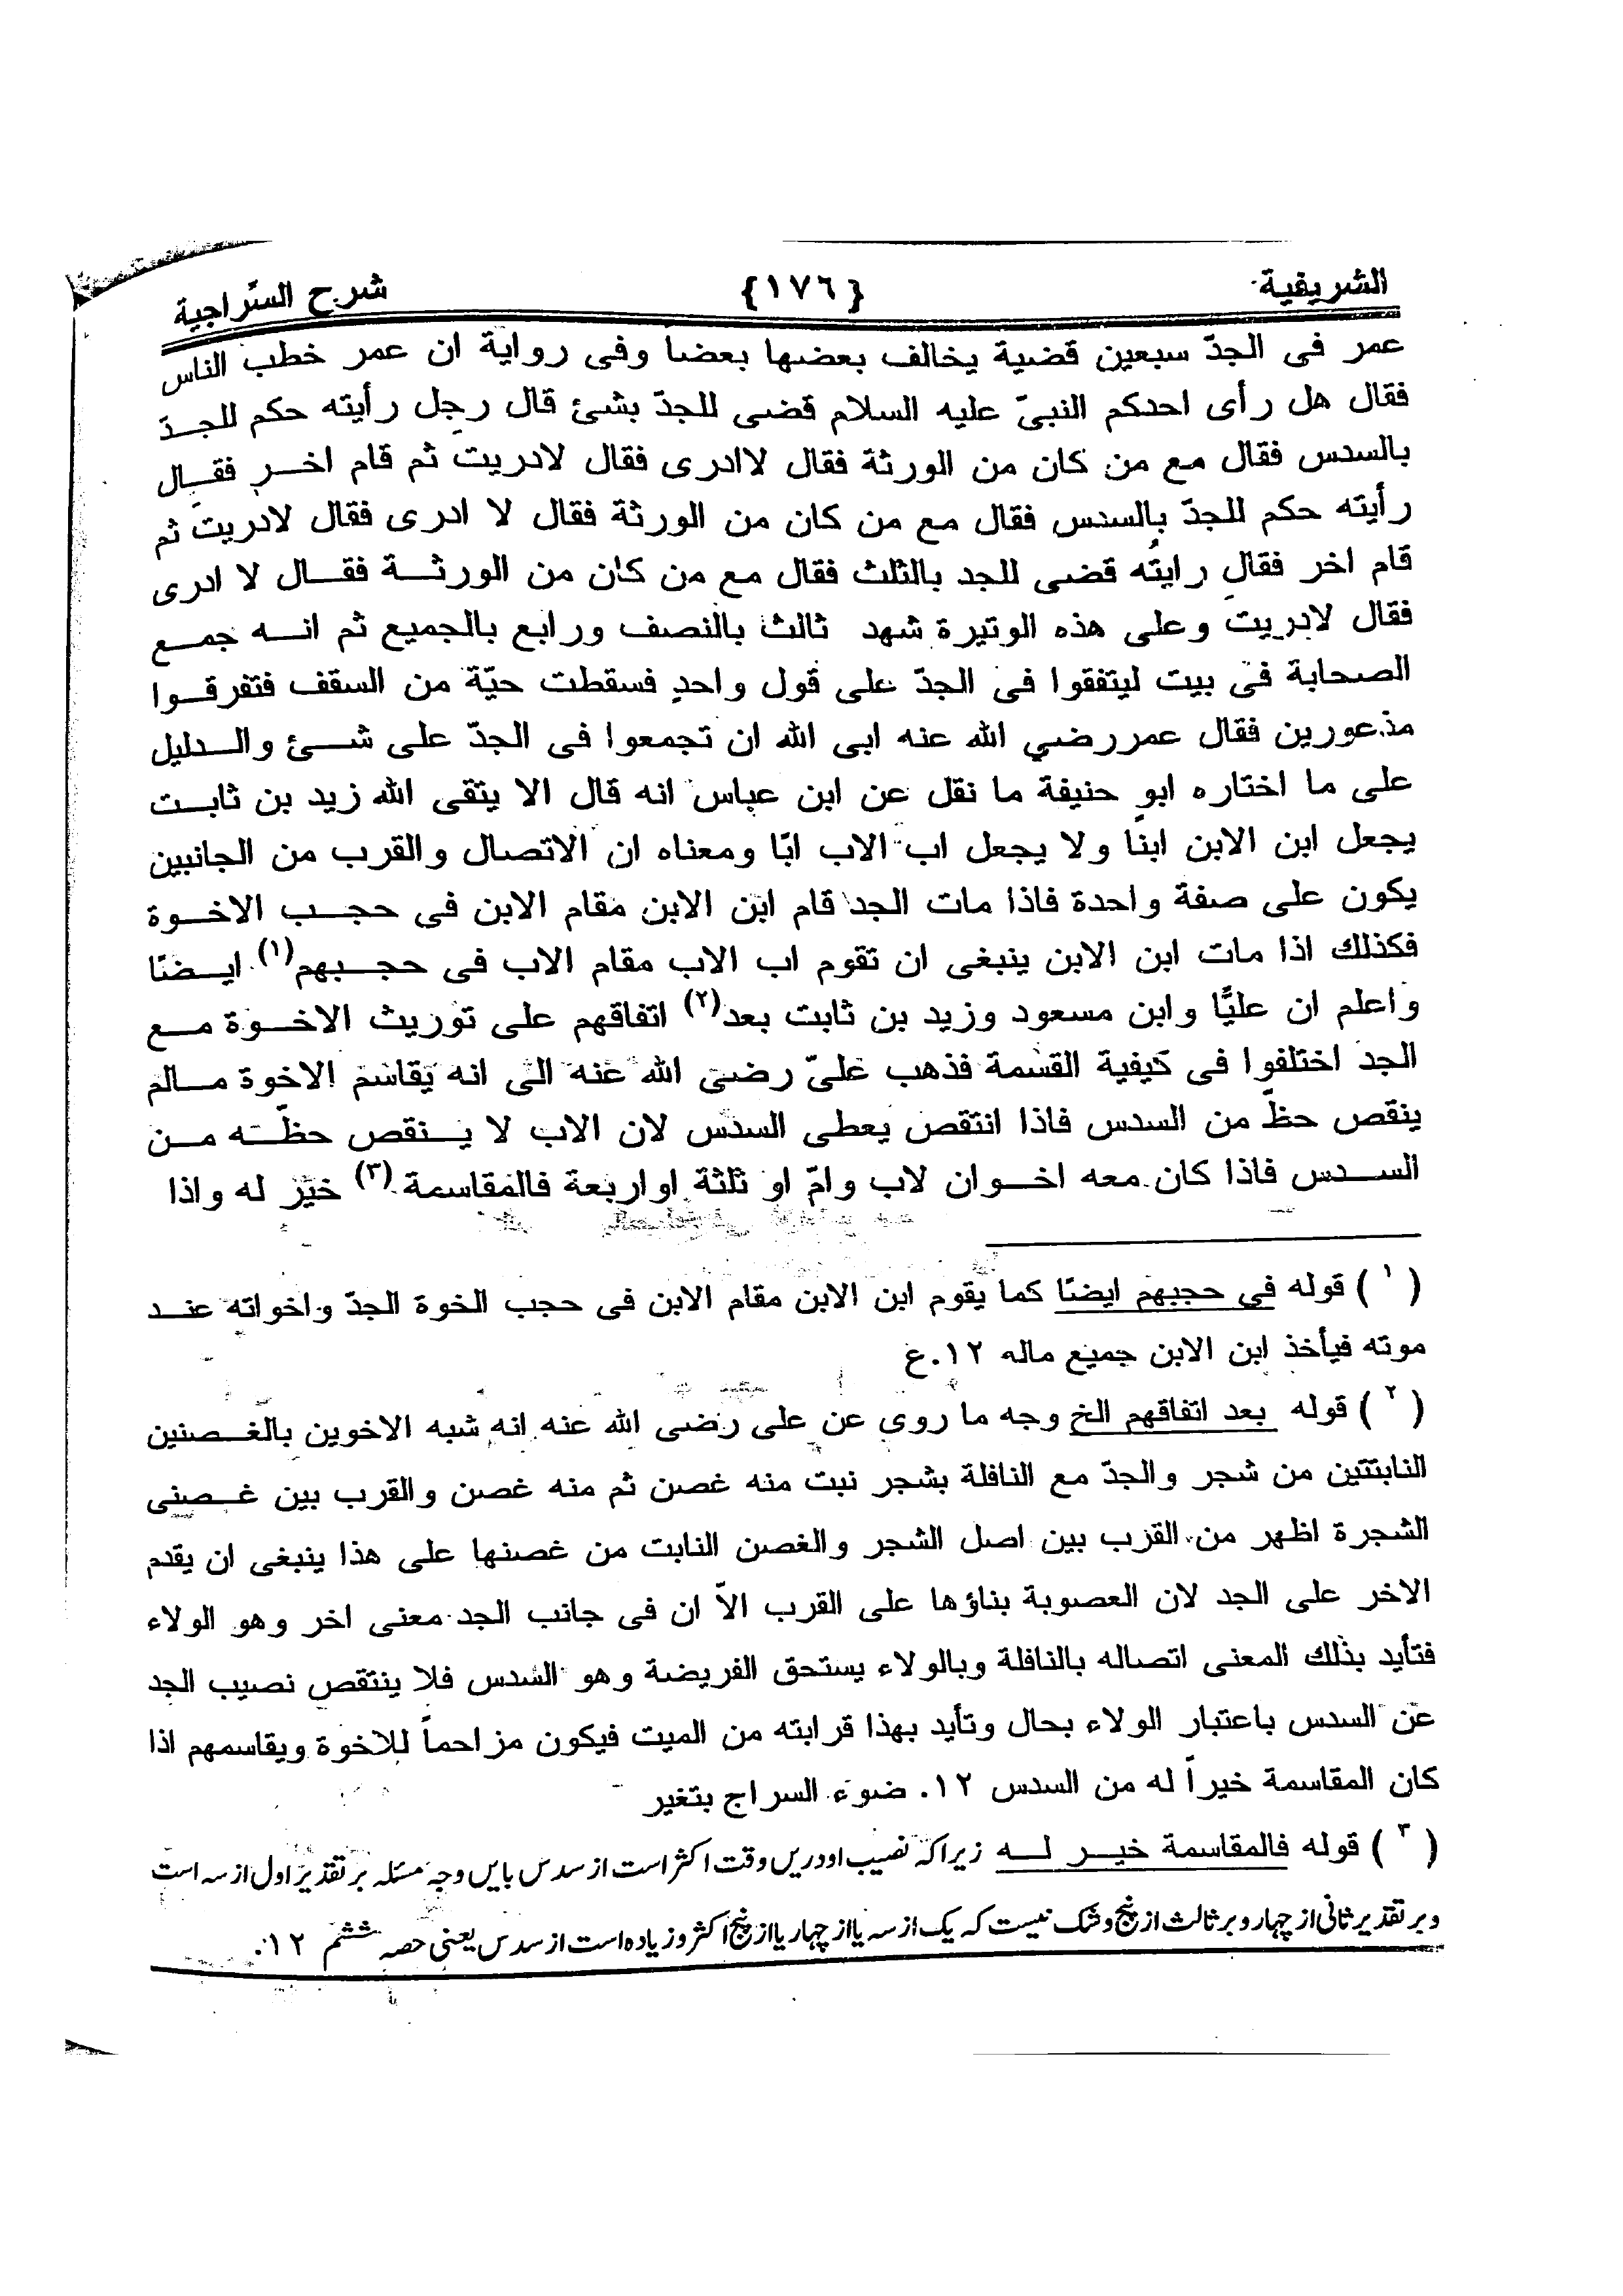 الشريفية {١٧٦} شرح السّراجية
عمر فى الجدّ سبعين قضية يخالف بعضها بعضاً وفى رواية ان عمر خطب الناس
فقال هل رأى احدكم النبىّ عليه السلام قضى للجدّ بشئ قال رجل رأيته حكم للجدّ
بالسدس فقال مع من كان من الورثة فقال لاادرى فقال لادريت ثم قام اخر فقال
رأيته حكم للجدّ بالسدس فقال مع من كان من الورثة فقال لا ادرى فقال لادريت ثم
قام اخر فقال رايته قضى للجد بالثلث فقال مع من كان من الورثة فقال لا ادرى
فقال لادريت وعلى هذه الوتيرة شهد ثالث بالنصف ورابع بالجميع ثم انه جمع
الصحابة فى بيت ليتفقوا فى الجدّ على قول واحد فسقطت حيّة من السقف فتفرقوا
مذعورين فقال عمررضي الله عنه ابى الله ان تجمعوا فى الجدّ على شئ والدليل
على ما اختاره ابو حنيفة ما نقل عن ابن عباس انه قال الا يتقى الله زيد بن ثابت
يجعل ابن الابن ابنا ولا يجعل اب الاب ابًا ومعناه ان الاتصال والقرب من الجانبين
يكون على صفة واحدة فاذا مات الجد قام ابن الابن مقام الابن فى حجب الاخوة
فكذلك اذا مات ابن الابن ينبغى ان تقوم اب الاب مقام الاب فى حجبهم(١) ايضًا
واعلم ان عليًّا وابن مسعود وزيد بن ثابت بعد(٢) اتفاقهم على توريث الاخوة مع
الجد اختلفوا فى كيفية القسمة فذهب علىّ رضى الله عنه الى انه يقاسم الاخوة مالم
ينقص حظّ من السدس فاذا انتقص يعطى السدس لان الاب لا ينقص حظّه من
السدس فاذا كان معه اخوان لاب وامّ او ثلثة اواربعة فالمقاسمة(٣) خير له واذا
(١) قوله فى حجبهم ايضًا كما يقوم ابن الابن مقام الابن فى حجب الخوة الجدّ واخواته عند
موته فيأخذ ابن الابن جميع ماله ١٢.ع
(٢) قوله بعد اتفاقهم الخ وجه ما روى عن على رضى الله عنه انه شبه الاخوين بالغصنين
النابتتين من شجر والجدّ مع النافلة بشجر نبت منه غصن ثم منه غصن والقرب بين غصنى
الشجرة اظهر من القرب بين اصل الشجر والغصن النابت من غصنها على هذا ينبغى ان يقدم
الاخر على الجد لان العصوبة بناؤها على القرب الاّ ان فى جانب الجد معنى اخر وهو الولاء
فتأيد بذلك المعنى اتصاله بالنافلة وبالولاء يستحق الفريضة وهو السدس فلا ينتقص نصيب الجد
عن السدس باعتبار الولاء بحال وتأيد بهذا قرابته من الميت فيكون مزاحماً للاخوة ويقاسمهم اذا
كان المقاسمة خيراً له من السدس ١٢. ضوء السراج بتغير
(٣) قوله فالمقاسمة خير له زيراكہ نصيب اودريں وقت اكثر است از سدس بايں وجہ مسئلہ بر تقدير اول از سہ است
و بر تقدير ثانى از چہار و بر ثالث از پنج و شک نيست كہ يک از سہ يا از چہار يا از پنج اكثر و زياده است از سدس يعنى حصہ ششم ١٢.